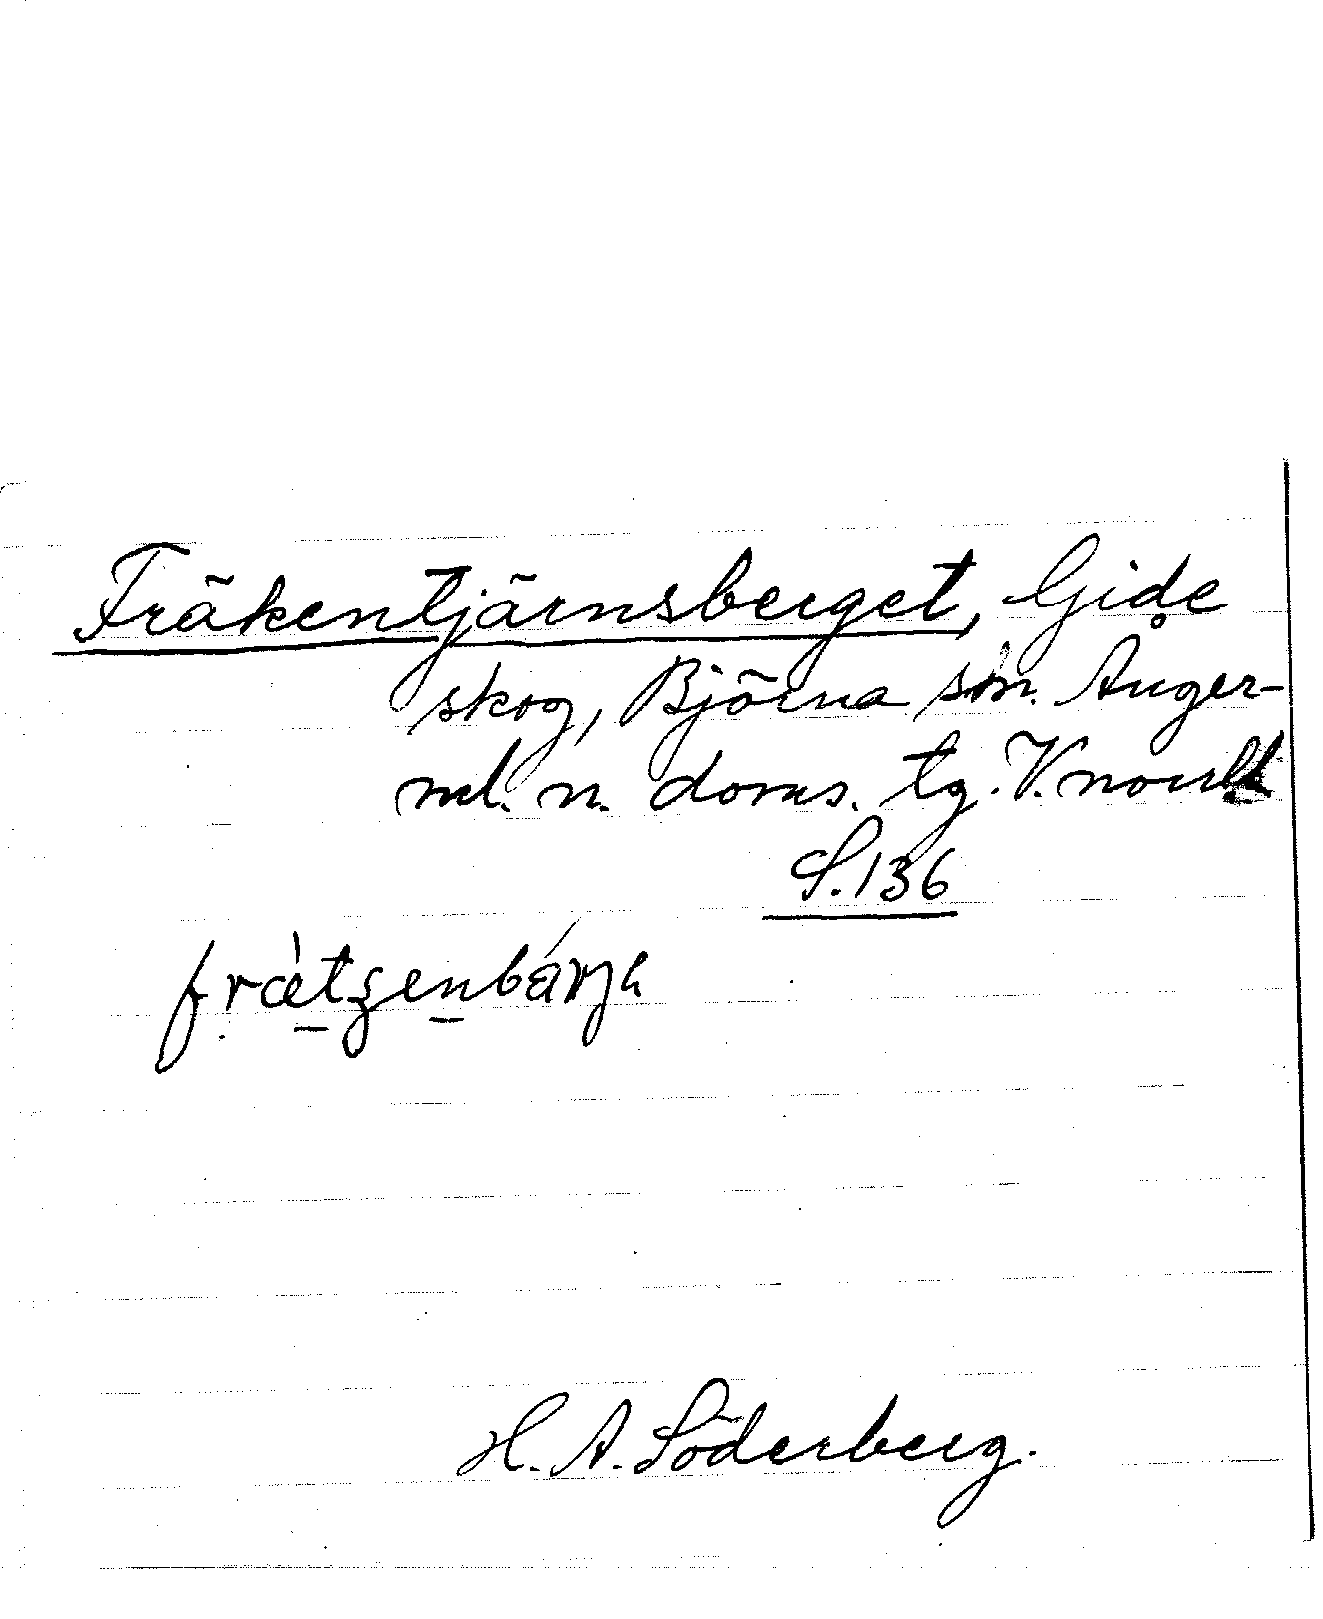 Fräkentjärnsberget, Gide
skog, Björna sn. Ånger-
ml. n. doms. tg. V.norrl
S.136
H. A. Söderberg.